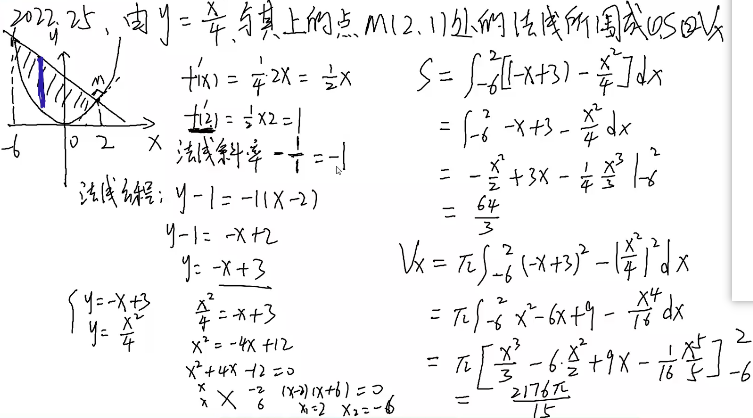 2022.25、由y=x²/4,与其上的点M(2,1)处的法线所围成①S②Vx
y
M
-6 0 2 x
f'(x)=1/4·2x=1/2x
f'(2)=1/2×2=1
法线斜率 -1/1=-1
法线方程: y-1=-1(x-2)
y-1=-x+2
y=-x+3
{y=-x+3
y=x²/4
x²/4=-x+3
x²=-4x+12
x²+4x-12=0
x -2
x 6
(x-2)(x+6)=0
x₁=2 x₂=-6
S=∫₋₆²[(-x+3)-x²/4]dx
=∫₋₆² -x+3-x²/4 dx
=-x²/2+3x-1/4 x³/3|₋₆²
=64/3
Vx=π∫₋₆²(-x+3)²-(x²/4)²dx
=π∫₋₆² x²-6x+9-x⁴/16 dx
=π[x³/3-6·x²/2+9x-1/16 x⁵/5]₋₆²
=2176π/15